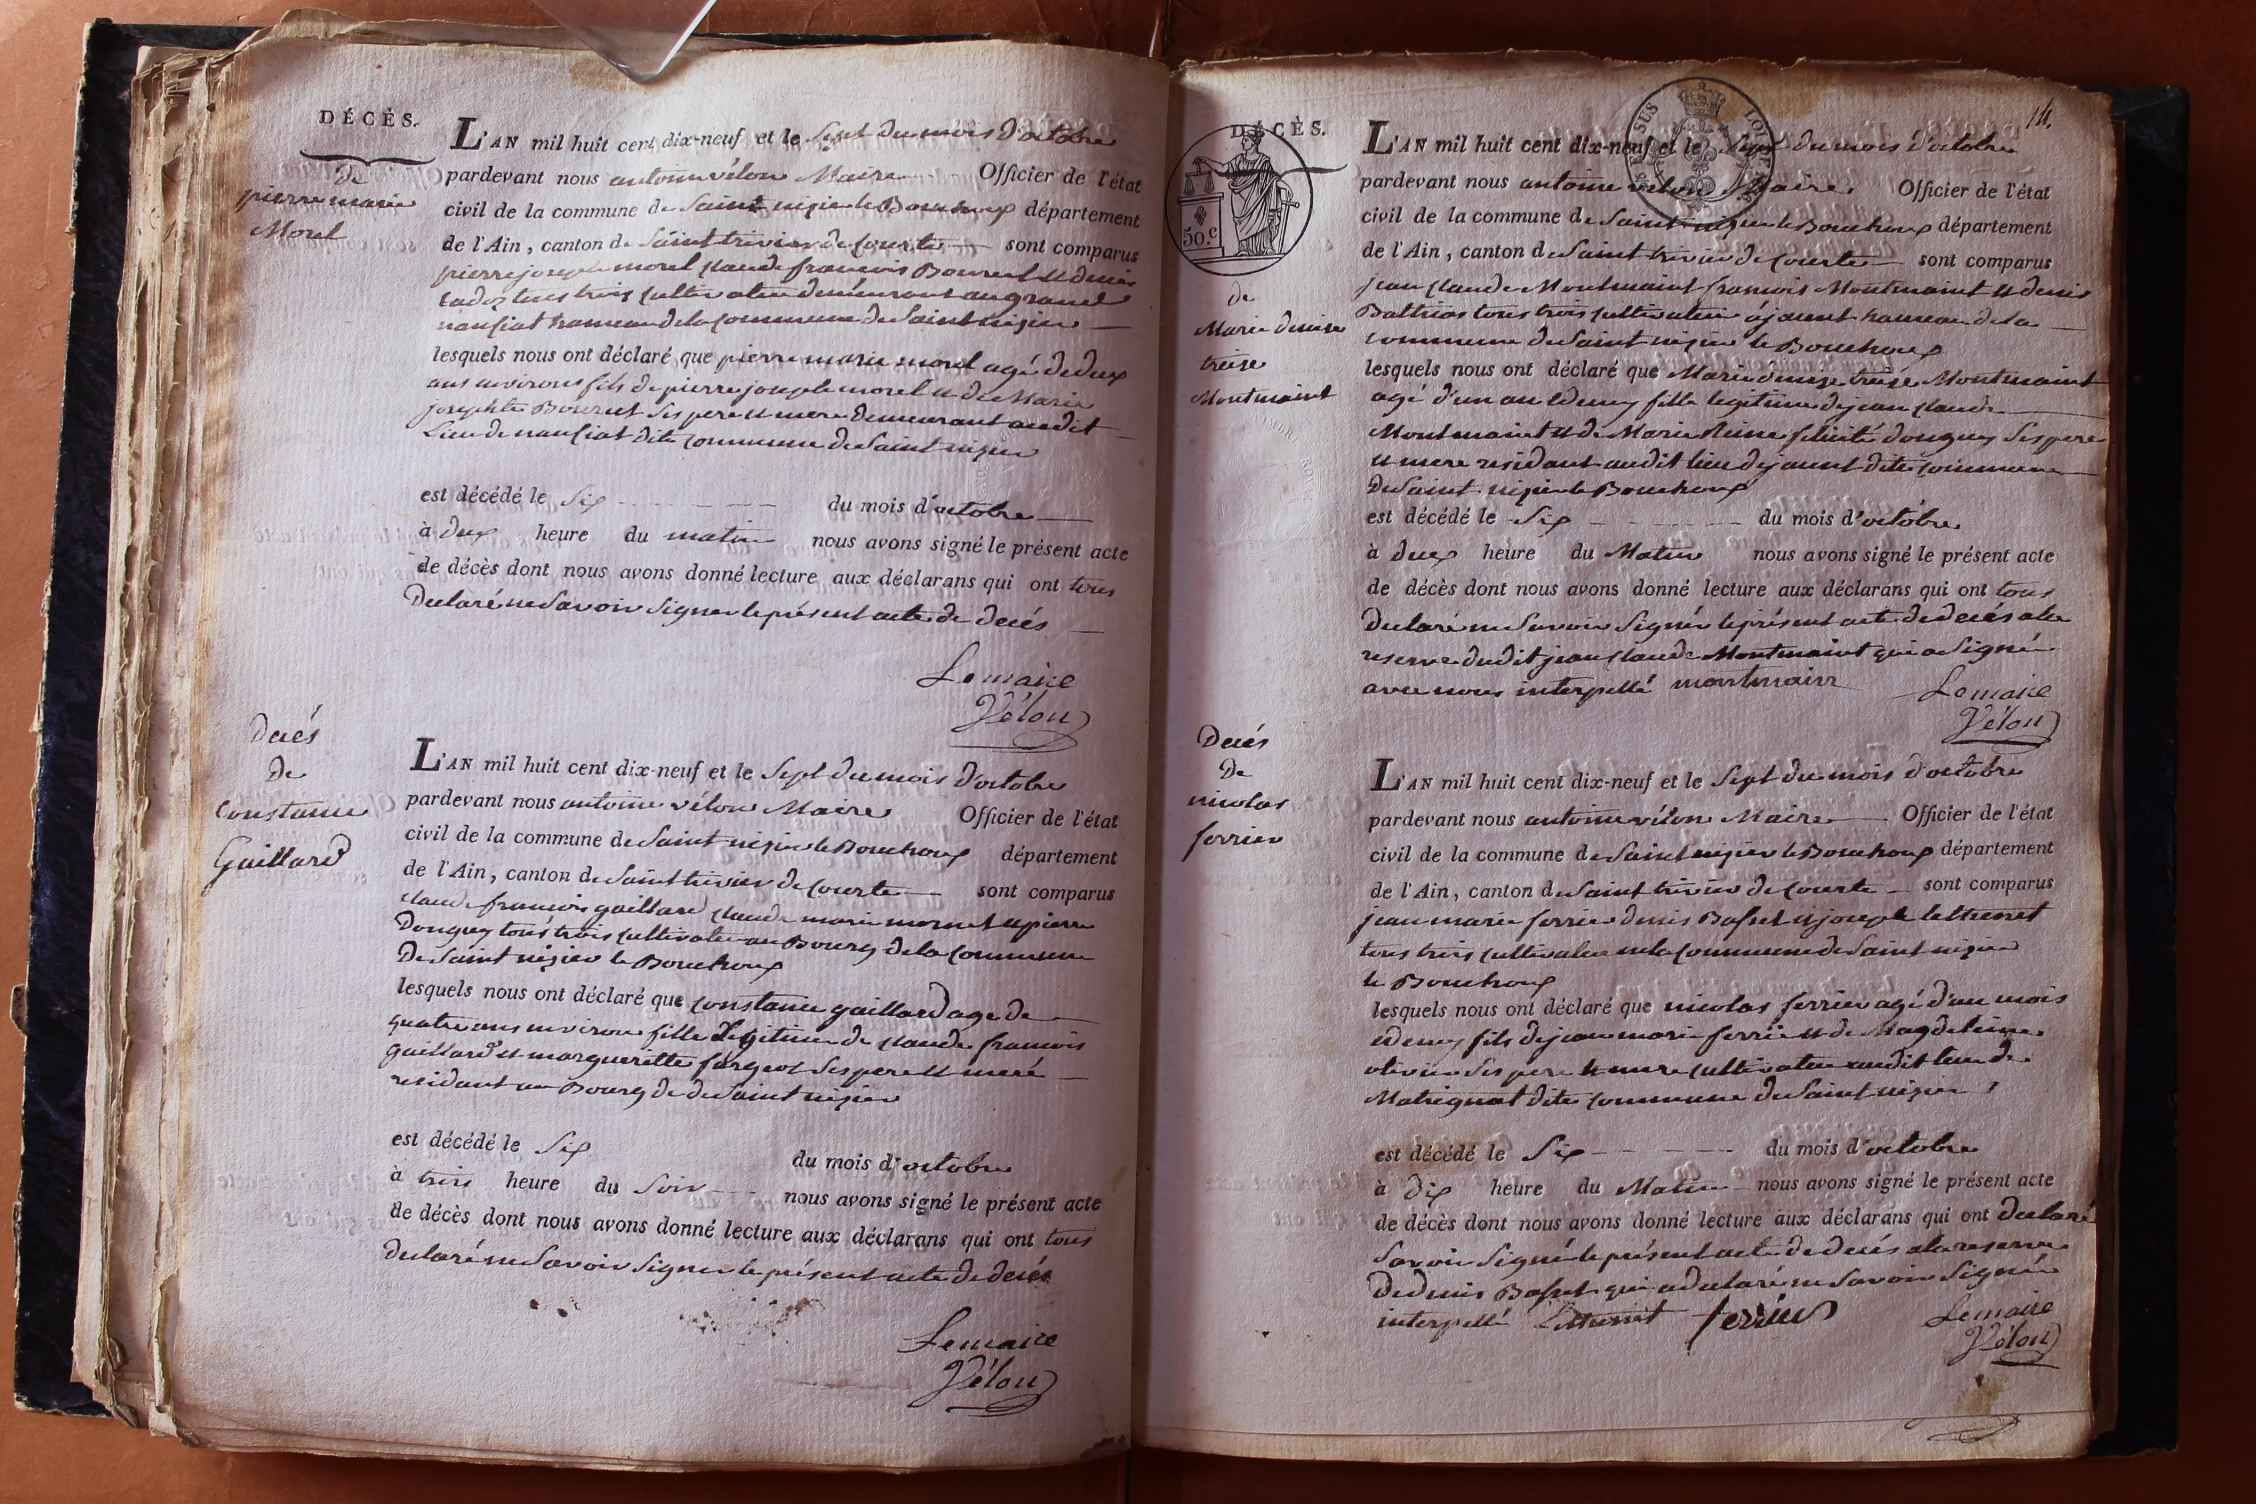 DÉCÈS.
de
pierre marie
Morel
L'AN mil huit cent dix-neuf et le Sept du mois d'octobre
pardevant nous antoine vélon Maire Officier de l'état
civil de la commune de Saint nizier le Bouchoux département
de l'Ain, canton de Saint trivier de Courte sont comparus
pierre joseph morel claude francois Bourcel et denis
tous trois cultivateur demeurant au grand
nanciat hameau de la commune de Saint nizier
lesquels nous ont déclaré que pierre marie morel agé de deux
ans environs fils de pierre joseph morel et de Marie
josephte ses pere et mere demeurant audit
Lieu de nanciat dite commune de Saint nizier
est décédé le Six du mois d'octobre
à deux heure du matin nous avons signé le présent acte
de décès dont nous avons donné lecture aux déclarans qui ont tous
Declaré ne Savoir Signer le présent acte de decés
Le maire
Vélon
Decés
de
Constance
Gaillard
L'AN mil huit cent dix-neuf et le Sept du mois d'octobre
pardevant nous antoine vélon Maire Officier de l'état
civil de la commune de Saint nizier le Bouchoux département
de l'Ain, canton de Saint trivier de Courte sont comparus
claude francois gaillard claude marie mornet et pierre
Donguy tous trois cultivateur au Bourg de la Commune
De Saint nizier le Bouchoux
lesquels nous ont déclaré que Constance gaillard age de
quatre ans environ fille Legitime de claude francois
gaillard et margueritte fargeot Ses pere et mere
residant au Bourg de de Saint nizier
est décédé le Six du mois d'octobre
à trois heure du Soir nous avons signé le présent acte
de décès dont nous avons donné lecture aux déclarans qui ont tous
Declaré ne Savoir Signer le présent acte de decés
Le maire
Vélon
14.
DÉCÈS.
50.c
de
Marie denise
treise
Montmaint
L'AN mil huit cent dix-neuf et le Sept du mois d'octobre
pardevant nous antoine velon Maire Officier de l'état
civil de la commune de Saint nizier le Bouchoux département
de l'Ain, canton de Saint trivier de Courte sont comparus
jean claude Montmaint francois Montmaint et denis
Bathias tous trois cultivateur à jaunet hameau de la
commune de Saint nizier le Bouchoux
lesquels nous ont déclaré que Marie denise treise Montmaint
agé d'un an et demy fille legitime de jean claude
Montmaint et de Marie Reine felicité donguy Ses pere
et mere residant audit lieu de jaunet dite commune
De Saint nizier le Bouchoux
est décédé le Six du mois d'octobre
à deux heure du Matin nous avons signé le présent acte
de décès dont nous avons donné lecture aux déclarans qui ont tous
Declaré ne Savoir Signer le présent acte de decés a la
reserve dudit jean claude Montmaint qui a Signé
avec nous interpellé montmain
Le maire
Vélon
Decés
De
nicolas
ferrier
L'AN mil huit cent dix-neuf et le Sept du mois d'octobre
pardevant nous antoine vélon Maire Officier de l'état
civil de la commune de Saint nizier le Bouchoux département
de l'Ain, canton de Saint trivier de Courte sont comparus
jean marie ferrier denis Bafset et joseph
tous trois cultivateur en la commune de Saint nizier
le Bouchoux
lesquels nous ont déclaré que nicolas ferrier agé d'un mois
et demy fils de jean marie ferrier et de Magdeleine
olivier Ses pere et mere cultivateur audit lieu de
Matrignat dite commune de Saint nizier
est décédé le Six du mois d'octobre
à dix heure du Matin nous avons signé le présent acte
de décès dont nous avons donné lecture aux déclarans qui ont declaré
Savoir Signé le présent acte de decés a la reserve
De denis Bafset qui a declaré ne Savoir Signée
interpellé ferrier
Le maire
Vélon